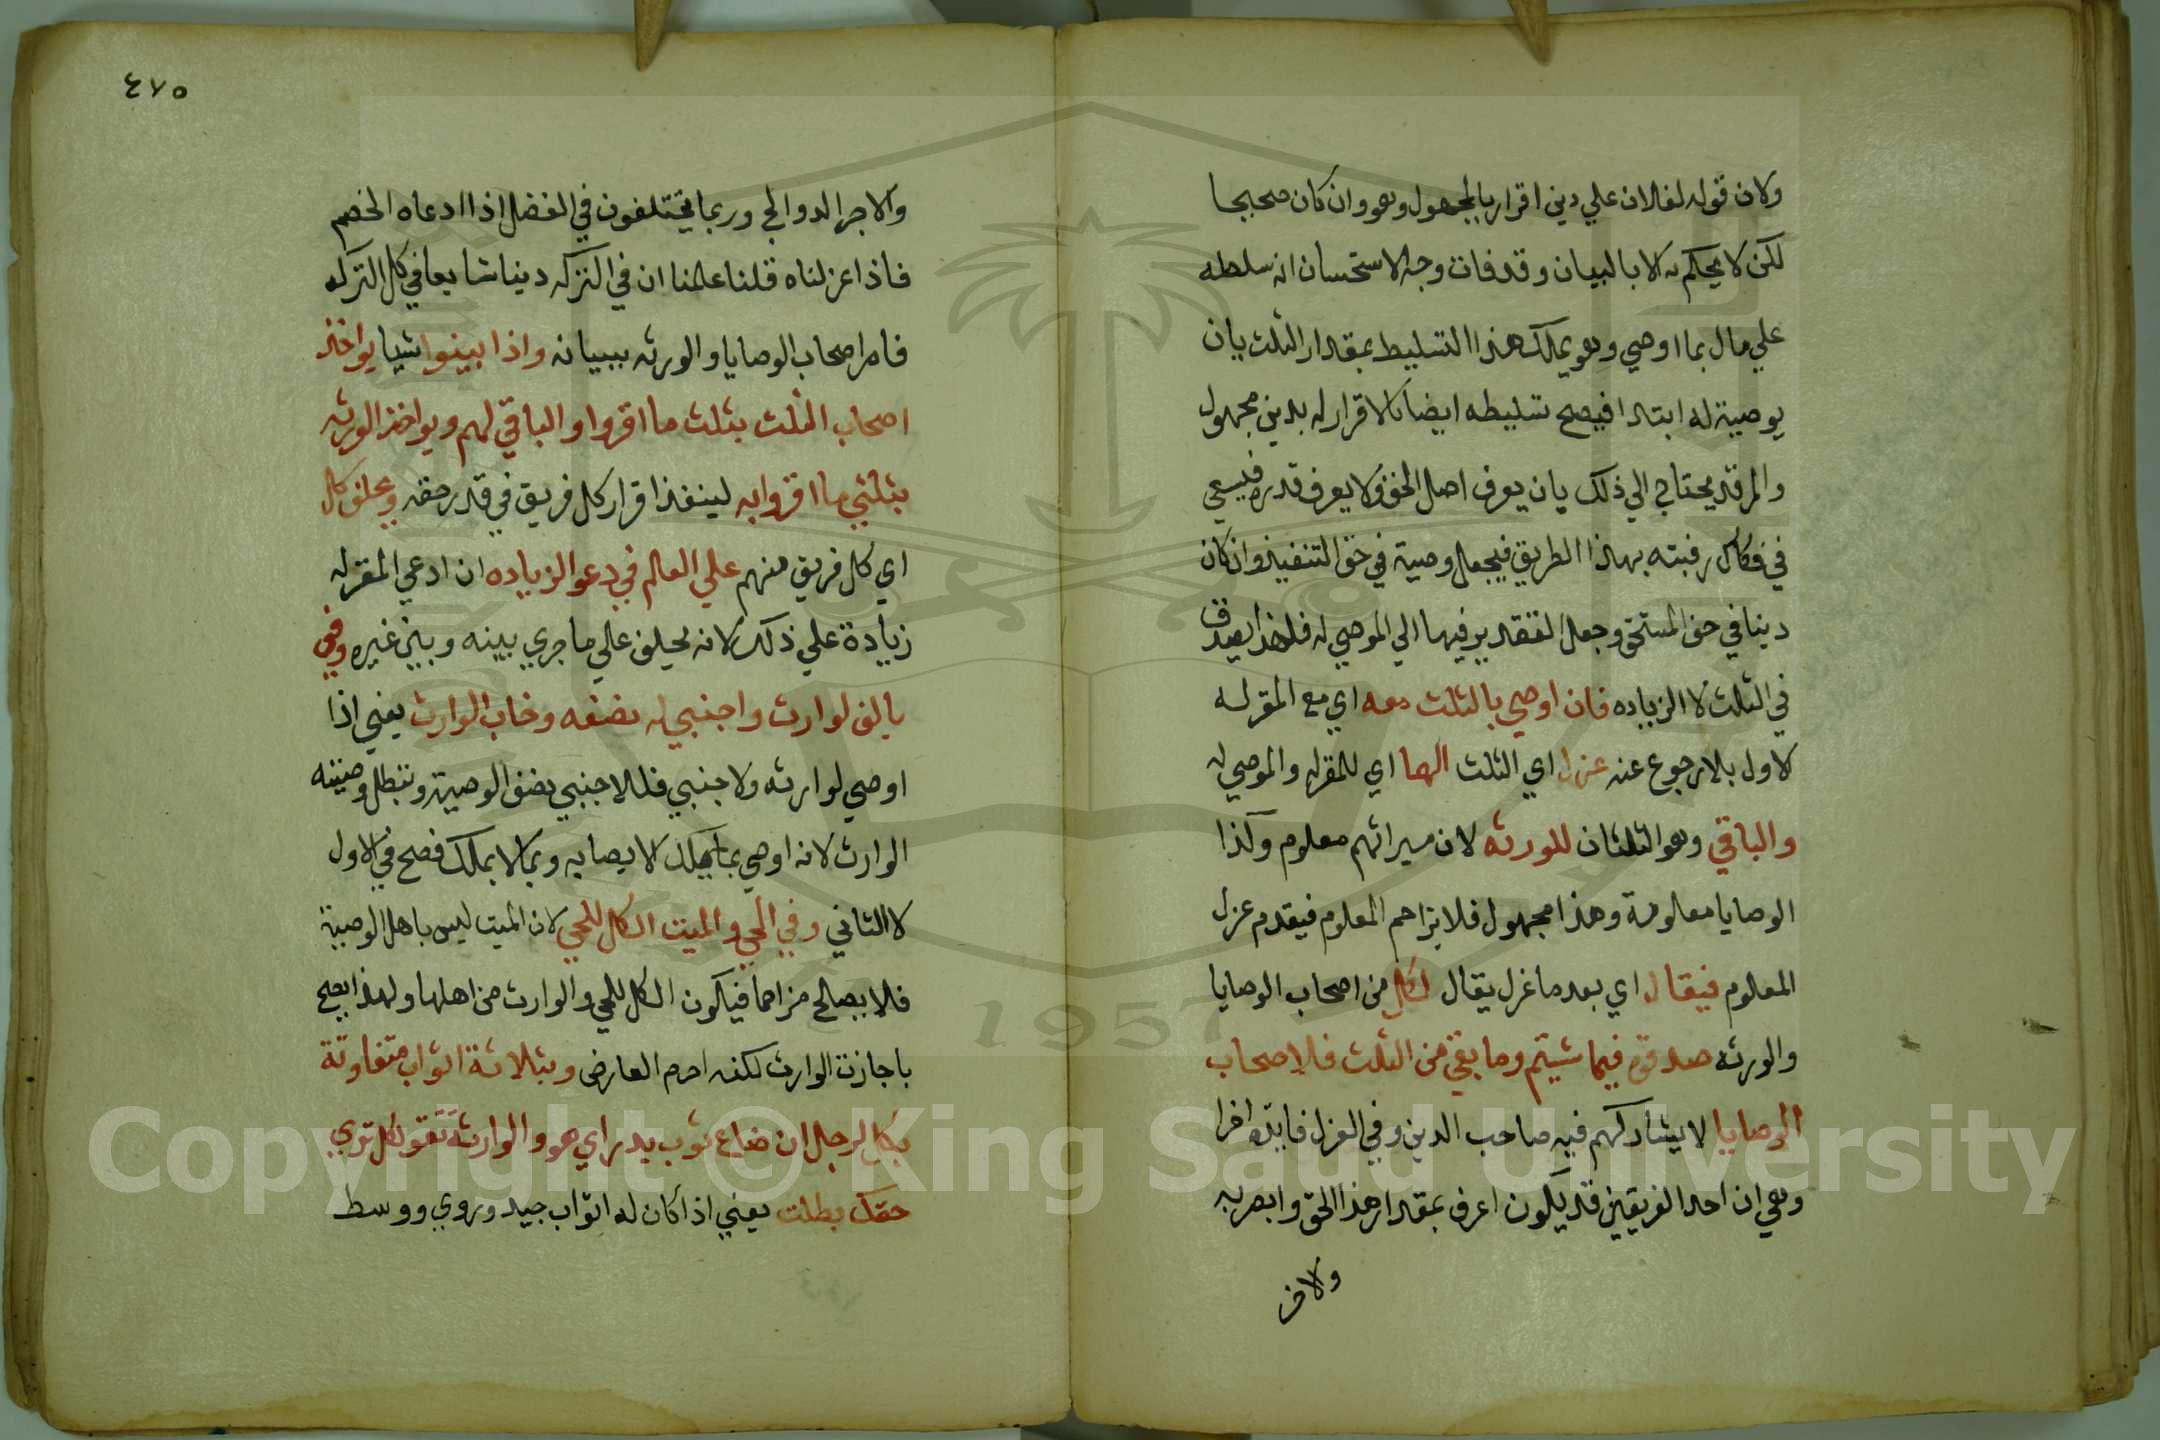 ولان قوله لفلان علي دين اقرار بالمجهول وهو وان كان صحيحا
لكن لا يحكم به الا بالبيان وقد فات وجه الاستحسان انه سلطه
علي مال بما اوصي وهو يملك هذا التسليط بمقدار الثلث بان
يوصيه له ابتدا فيصح تسليطه ايضا بالاقرار له بدين مجهول
والمر قد يحتاج الي ذلك بان يعرف اصل الحق ولا يعرف قدره فيسعي
في فكاك رقبته بهذا الطريق فيجعل وصية في حق التنفيذ وان كان
دينا في حق المستحق وجعل التقدير فيها الي الموصي له فلهذا يصدق
في الثلث لا الزياده فان اوصي بالثلث معه اي مع المقر له
الاول بلا رجوع عنه عزل اي الثلث لها اي للمقر له والموصي له
والباقي وهو الثلثان للورثه لان ميراثهم معلوم وكذا
الوصايا معلومة وهذا مجهول فلا يزاحم المعلوم فيقدم عزل
المعلوم فيقال اي بعد ما عزل يقال لكل من اصحاب الوصايا
والورثه صدقوه فيما شيتم وما بقي من الثلث فلاصحاب
الوصايا لا يشاركهم فيه صاحب الدين وفي العزل فايده اخرا
وهي ان احد الفريقين قد يكون اعرف بمقدار هذا الحق وابصر به
والاخر
٤٧٥
والاخر الد والج وربما يختلفون في الفضل اذا ادعاه الخصم
فاذا عزلناه قلنا علمنا ان في التركه دينا شايعا في كل التركه
فامر اصحاب الوصايا والورثه ببيانه واذا بينوا شيا يواخذ
اصحاب الثلث بثلث ما اقروا والباقي لهم ويواخذ الورثه
بثلثي ما اقروا به لينفذ اقرار كل فريق في قدر حقه ويحلف كل
اي كل فريق منهم علي العلم في دعوا الزياده ان ادعي المقر له
زيادة علي ذلك لانه يحلف علي ما جري بينه وبين غيره وفي
بالف لوارث واجنبي له نصفه وخاب الوارث يعني اذا
اوصي لوارثه ولاجنبي فللاجنبي نصف الوصية وتبطل وصيته
الوارث لانه اوصي بما يملك الايصا به وبما لا يملك فصح في الاول
لا الثاني وفي الحي والميت الكل للحي لان الميت ليس باهل الوصية
فلا يصلح مزاحما فيكون الكل للحي والوارث من اهلها ولهذا يصح
باجازت الوارث لكنه احرم العارض وبثلاثة اثواب متفاوتة
بكل لرجل ان ضاع ثوب يدر اي هو والوارثة تقول كل توي
حقك بطلت يعني اذا كان له اثواب جيد وروي ووسط